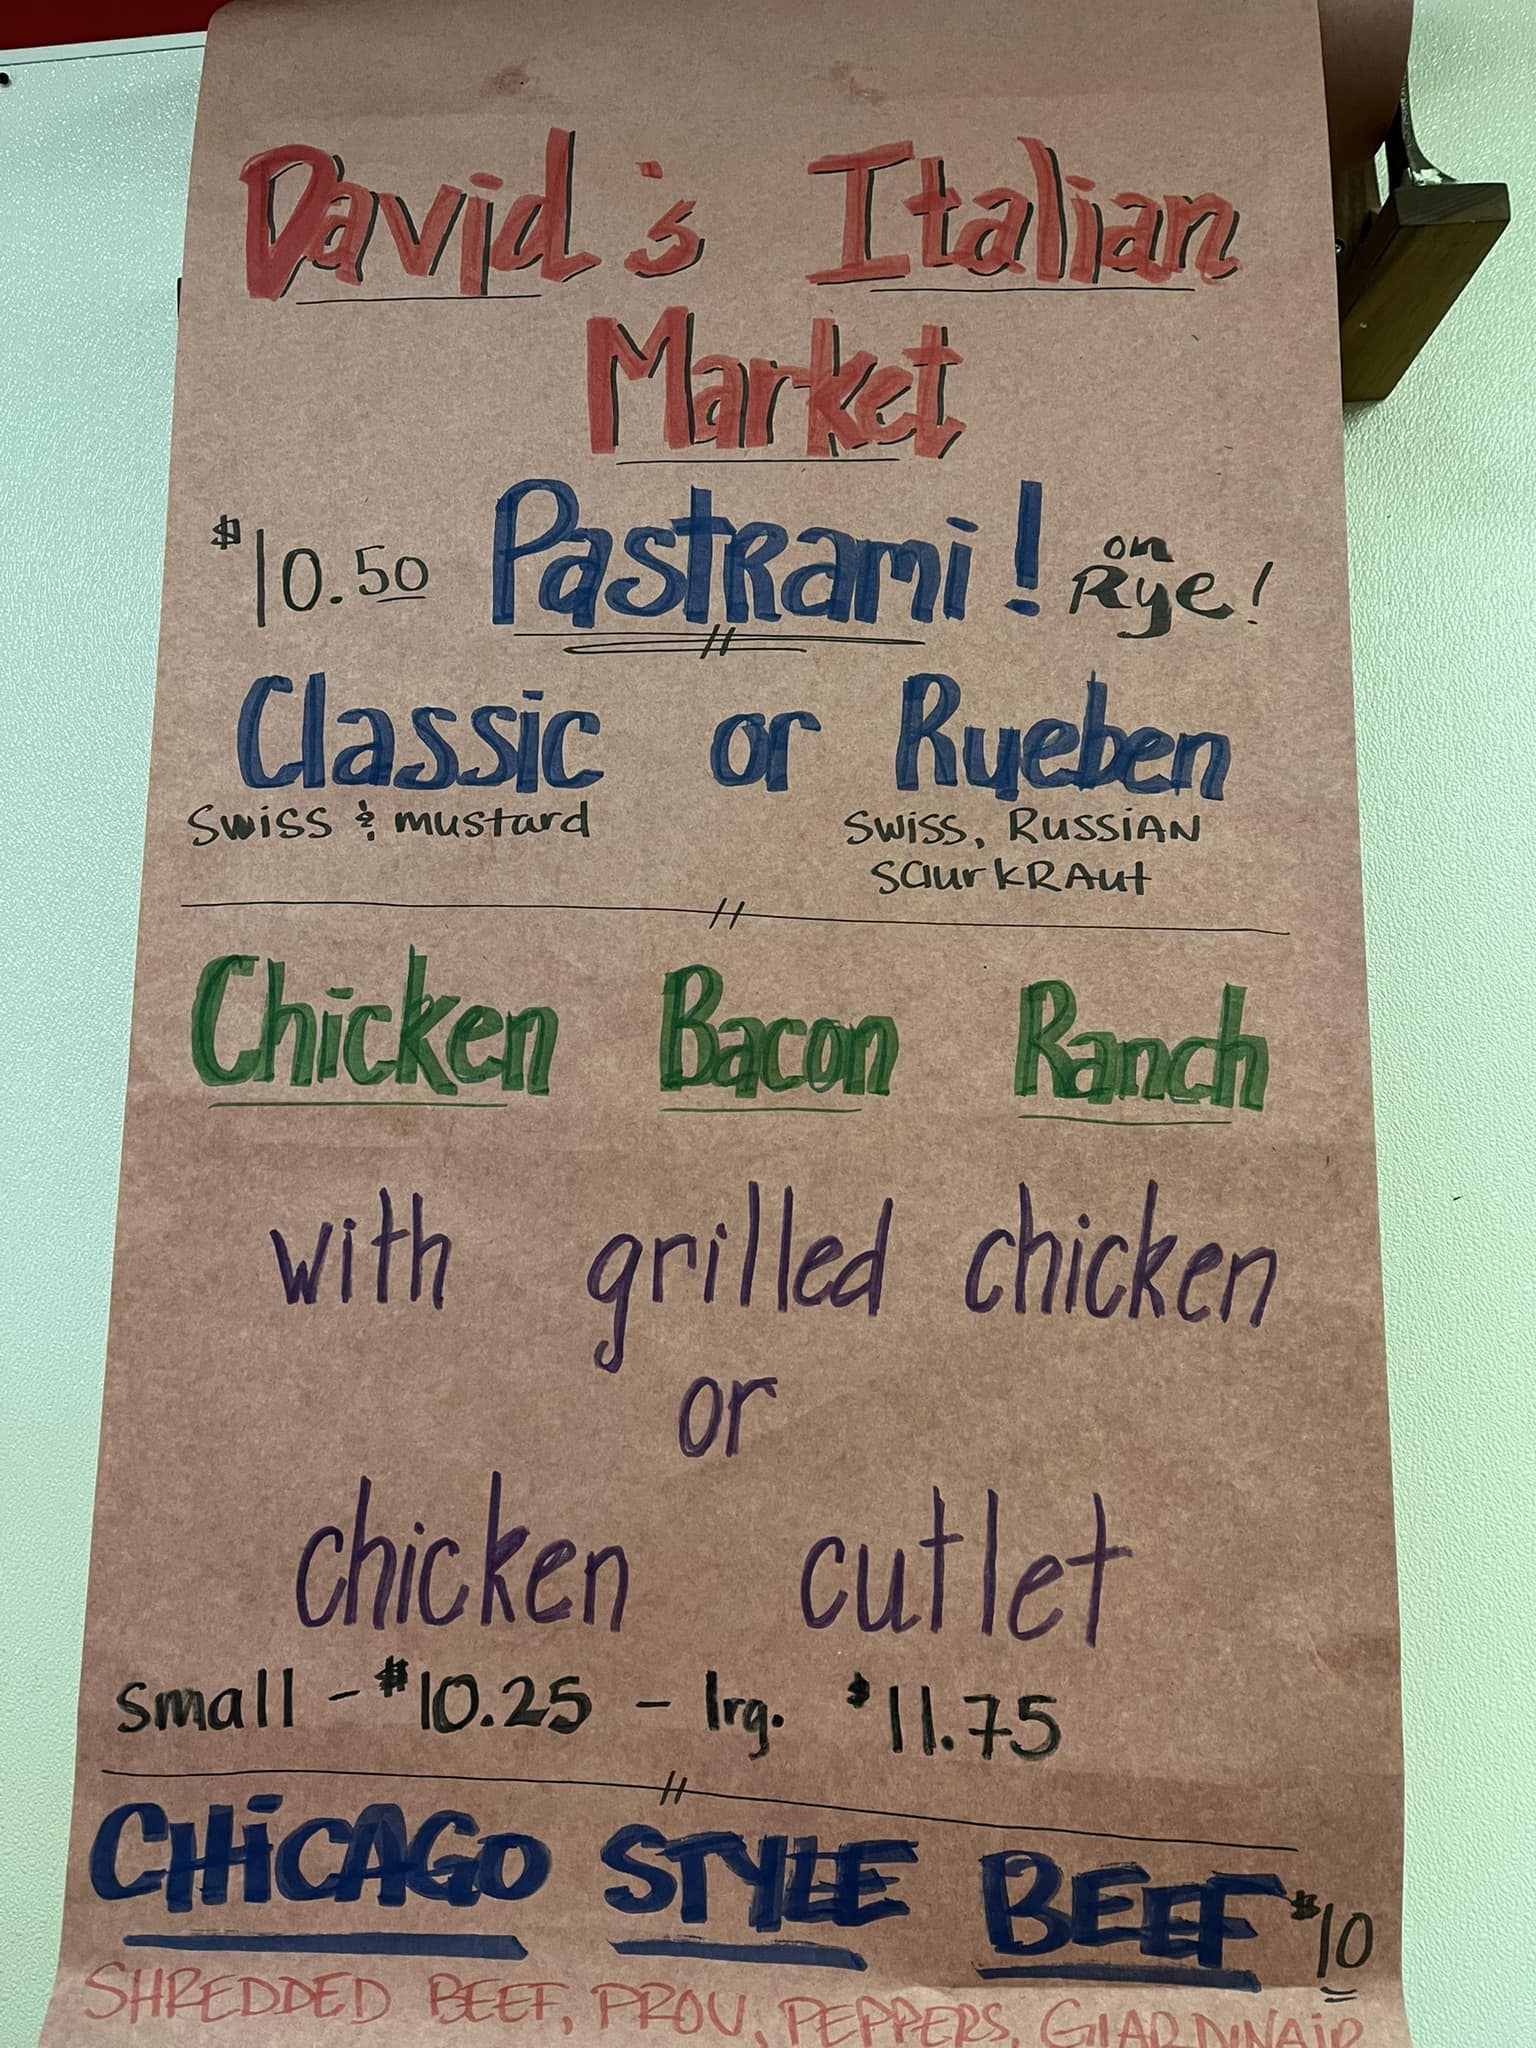 David's Italian
Market
$10.50 Pastrami! on Rye!
Classic or Rueben
Swiss & mustard
Swiss, Russian
Saurkraut
Chicken Bacon Ranch
with grilled chicken
or
chicken cutlet
small - $10.25 - lrg. $11.75
CHiCAGO STYLE BEEF $10
SHREDDED BEEF, PROV, PEPPERS, GIARDINAIR